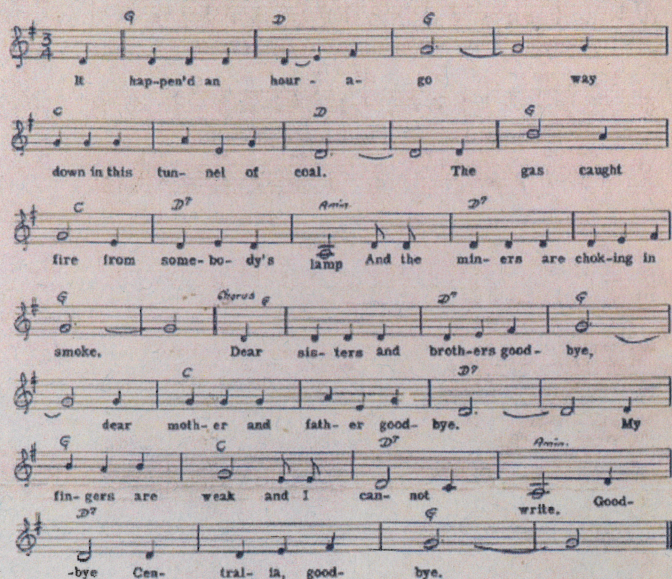 G D G
It hap-pen'd an hour - a- go way
C D G
down in this tun- nel of coal. The gas caught
C D7 Amin. D7
fire from some-bo-dy's lamp And the min- ers are chok-ing in
G Chorus G D7 G
smoke. Dear sis-ters and broth-ers good- bye,
C D7
dear moth-er and fath-er good- bye. My
G C D7 Amin.
fin-gers are weak and I can- not write. Good-
D7 G
-bye Cen- tral- ia, good- bye.